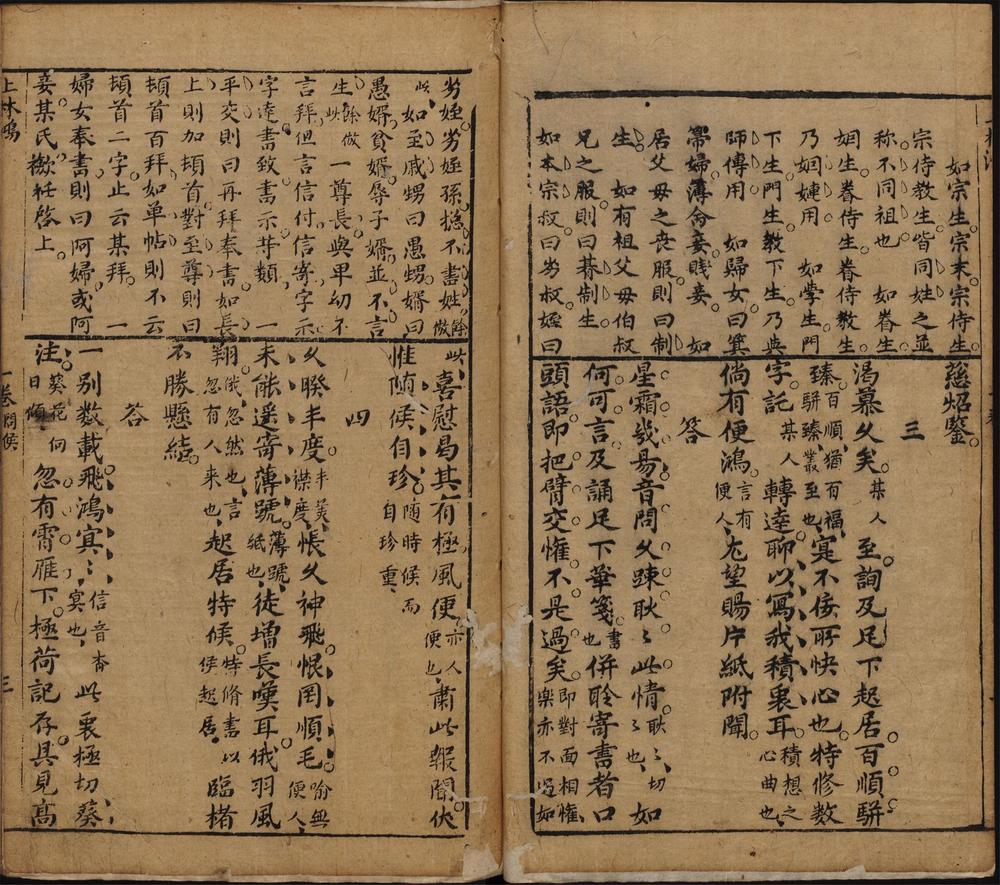 如宗生宗末宗侍生
宗侍教生皆同姓之並
称不同祖也　如眷生
姻生眷侍生眷侍教生
乃姻娌用　如学生門
下生門生教下生乃典
師傅用　如歸女曰箕
帚婦薄侖妾賤妾　如
居父母之丧服則曰制
生　如有祖父母伯叔
兄之服則曰朞制生
如本宗叔曰劣叔姪曰
慈炤鑒
三
渴慕久矣某人至詢及足下起居百順駢
臻百順猶百福駢臻叢至也寔不佞所快心也特修数
字託某人轉達聊以寫我積衷耳積想之心曲也
倘有便鴻言有便人尤望賜片紙附聞
答
星霜幾昜音問久踈耿〻此情耿〻切〻也如
何可言及誦足下華箋書也併聆寄書者口
頭語即把臂交懽不是過矣即對面相懽樂亦不過如
劣姪劣姪孫揔不書姓餘倣
此如至戚甥曰愚甥婿曰
愚婿貧婿辱子婿並不言
生餘倣此一尊長與卑幼不
言拜但言信付信寄字示
字達書致書示䓁類　一
平交則曰再拜奉書如長
上則加頓首對至尊則曰
頓首百拜如单帖則不云
頓首二字止云某拜　一
婦女奉書則曰阿婦或阿
妾某氏歛衽啓上
此喜慰曷其有極風便亦人便也肅此報聞伏
惟随侯自珍随時候而自珍重
四
久睽丰度丰美襟度悵久神飛恨罔順毛喻無便人
未能遥寄薄號薄號紙也徒增長嘆耳俄羽風
翔俄忽然也言忽有人来也起居特候特脩書以候起居臨楮
不勝懸結
答
一别数載飛鴻㝠〻信音杳㝠也此衷極切葵
注葵花向日傾忽有霄雁下極荷記存具見髙
上林
一卷問候
三